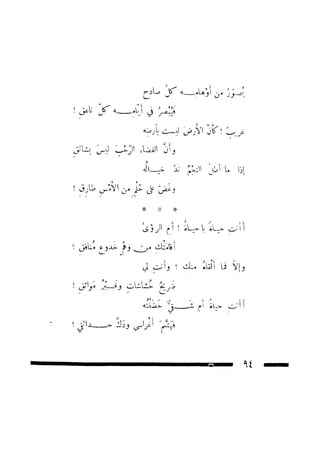 يُصَوِّرُ من أوْهامِـــه كلَّ صادح
فيُبْصِرُ في أيَّامِـــه كلَّ ناعقِ !
غريبٌ ! كأنَّ الأرضَ ليست بأرضه
وأنَّ الفضاءَ الرَّحْبَ ليسَ بشائقِ
إذا ما أضلَّ النجمُ ندَّ خيـــالُه
وغصَّ على حُلْمٍ من الأمْسِ طارقِ !
* * *
أأنتِ حياةٌ يا حياةُ ! أمِ الرؤى
أقامتْكِ من وهْمٍ خدوعٍ مُنافقِ ؟
وإلاَّ فما ألقاهُ منك ؟ وأنتِ لي
ضريحُ حُشاشاتٍ وقــبْرُ مَواثقِ !
أأنتِ حياةٌ أم شـــقيٌّ حضنْتُه
فهشَّمَ أغْراسي ودكَّ حـــدائقي !
٩٤